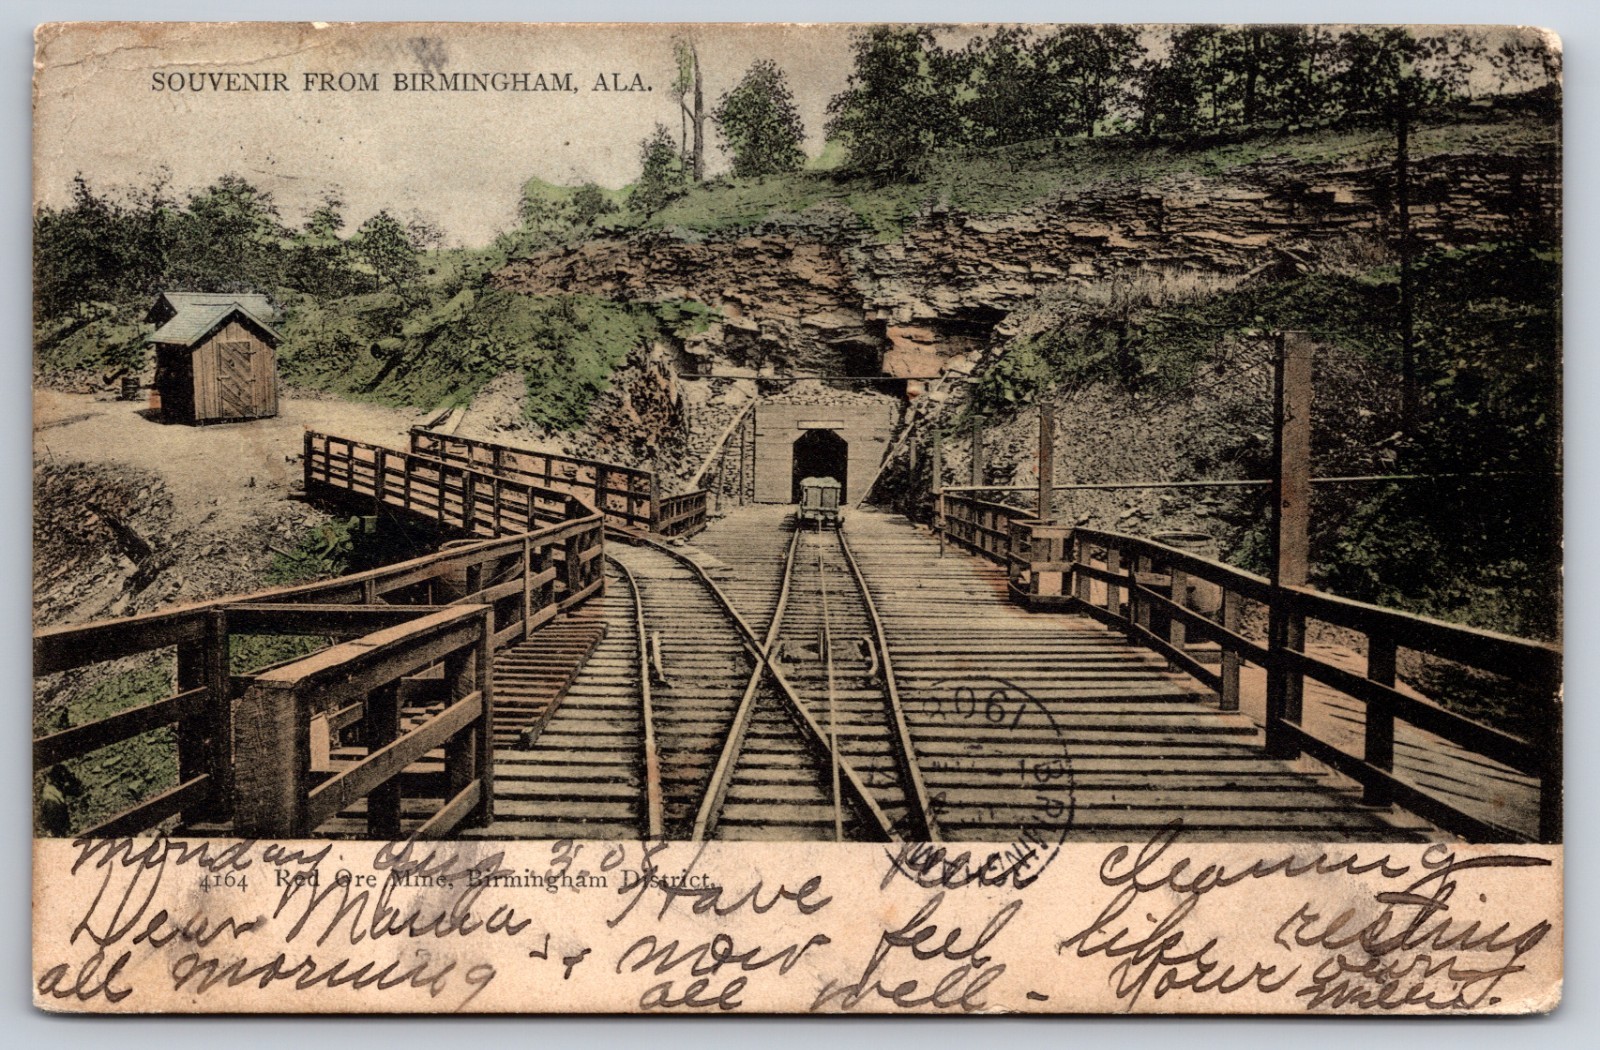 SOUVENIR FROM BIRMINGHAM, ALA.
1908
Monday. Aug 3 '08
4164 Red Ore Mine, Birmingham District.
Dear Mama, Have been cleaning
all morning & now feel like resting
all well - Your own
Willie.